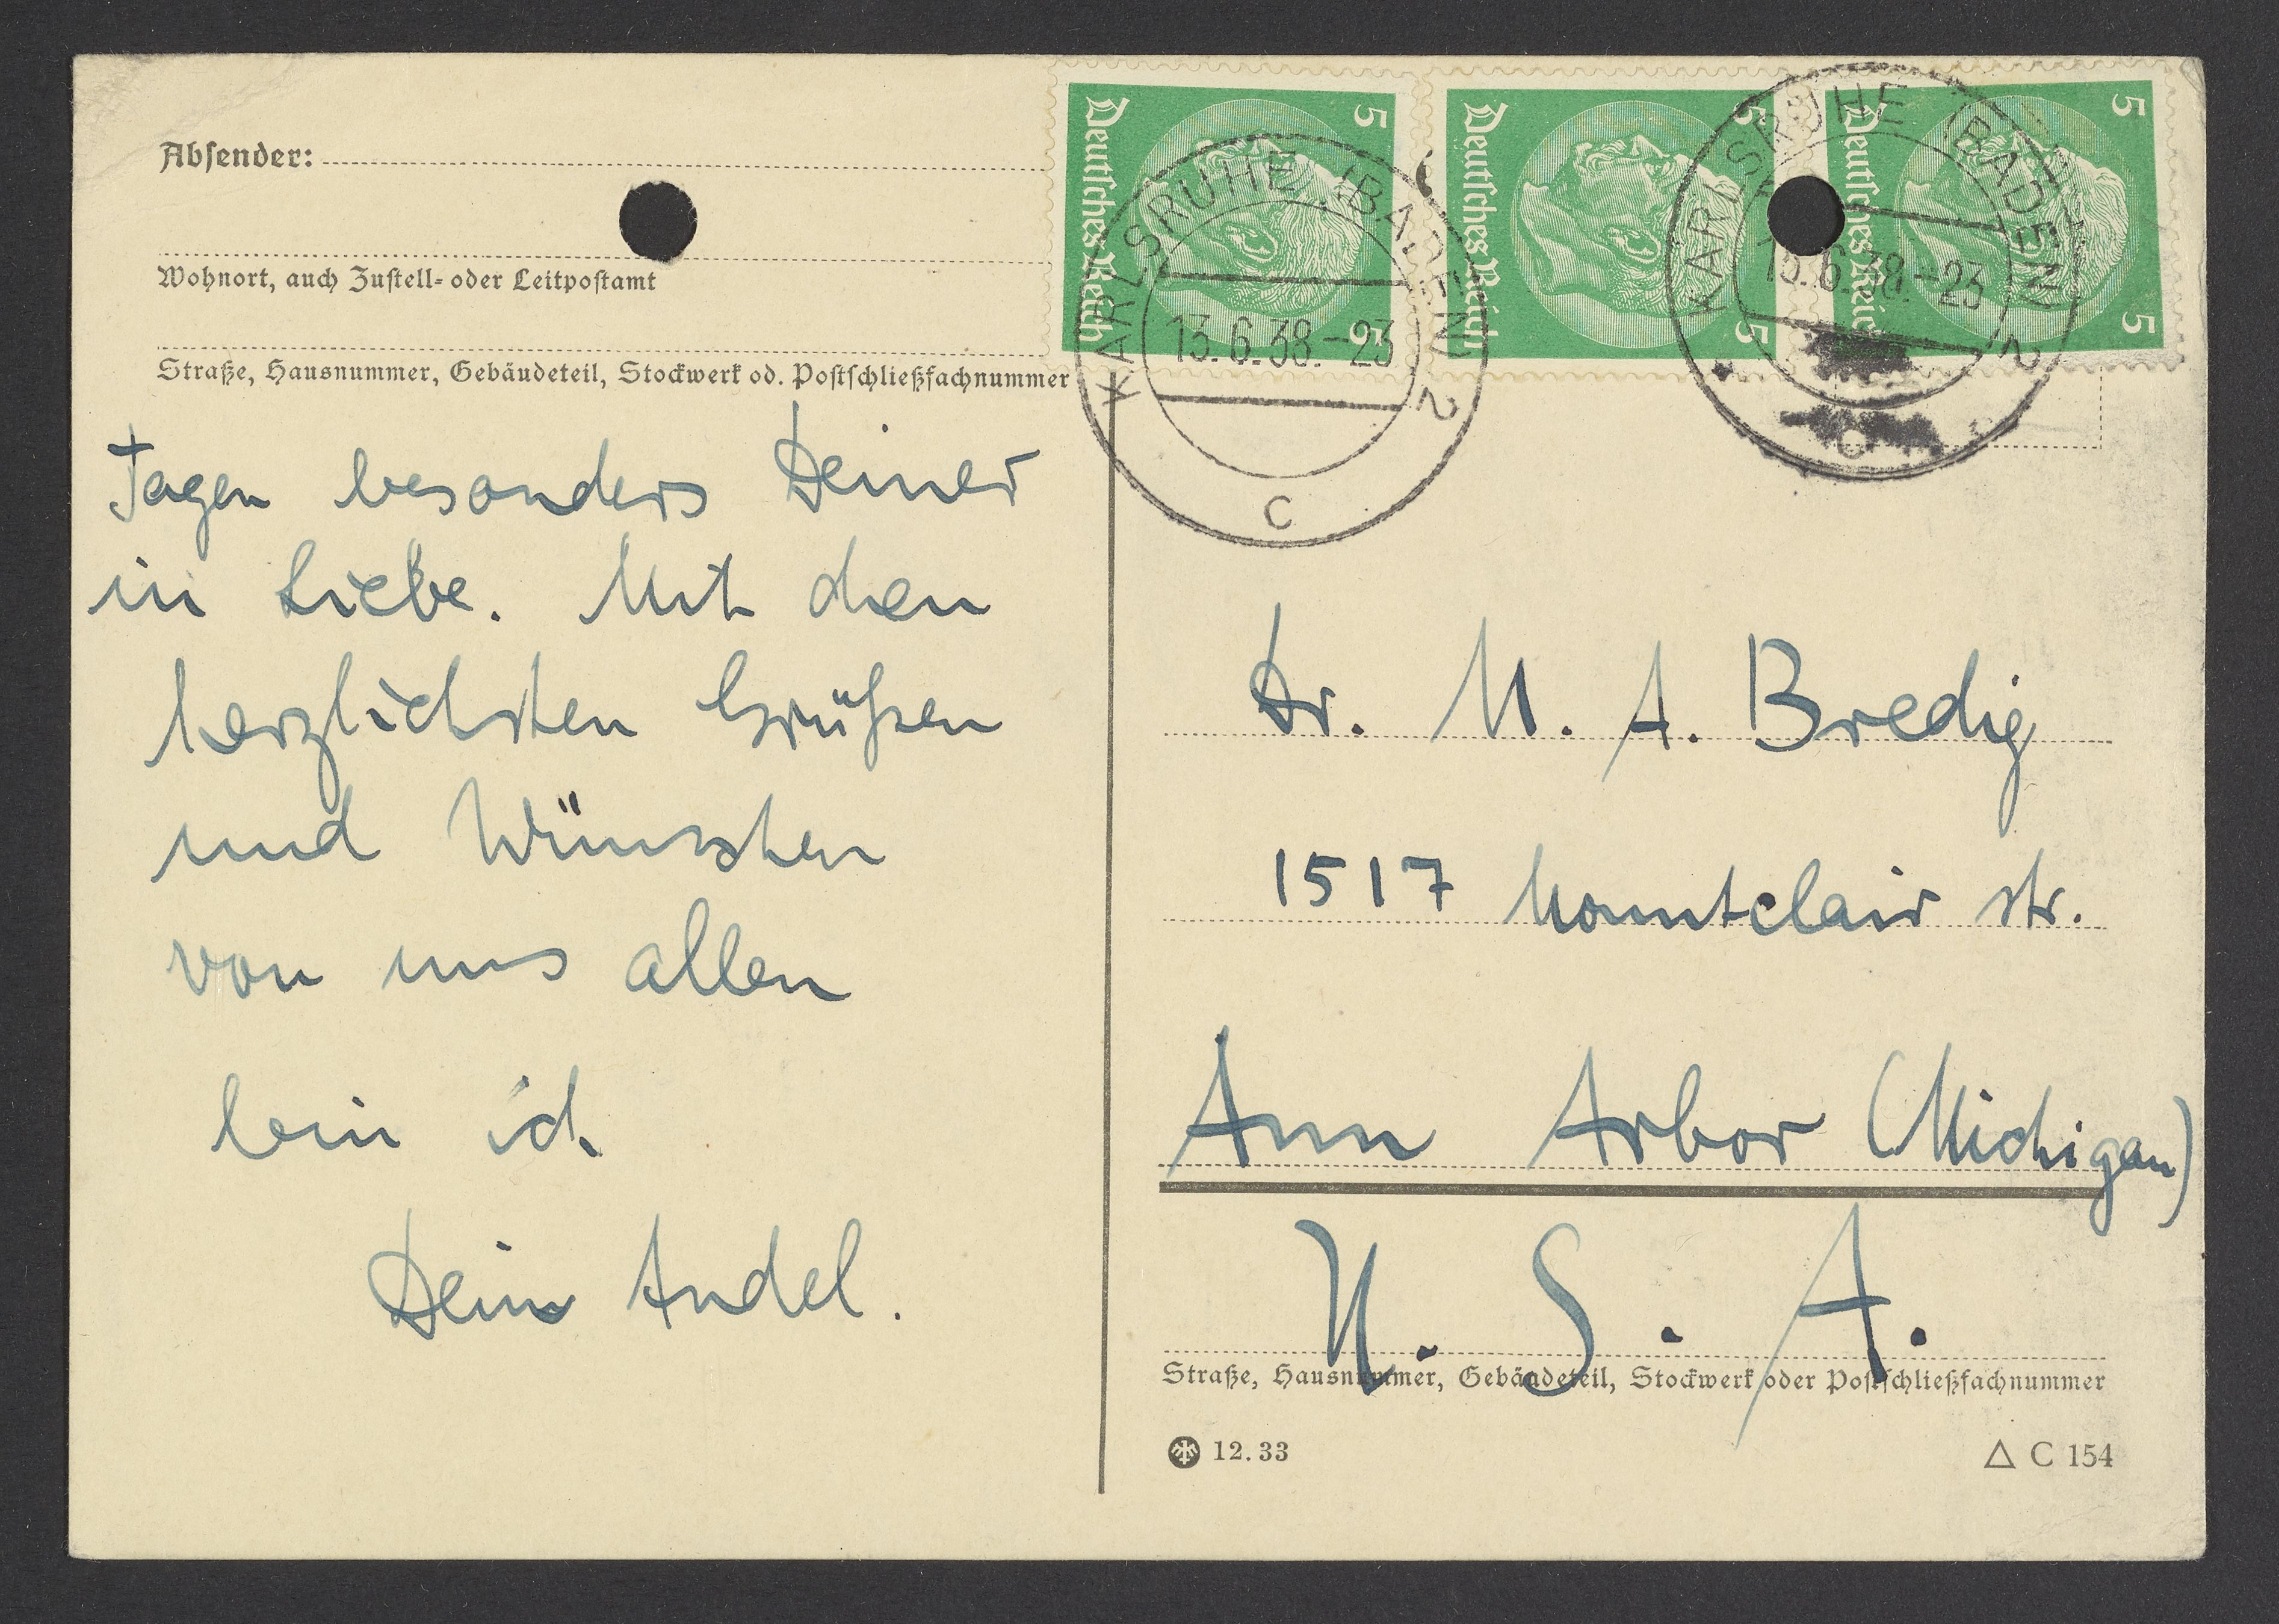 Absender:
Wohnort, auch Zustell- oder Leitpostamt
Straße, Hausnummer, Gebäudeteil, Stockwerk od. Postschließfachnummer
Tagen besonders Deiner
in Liebe. Mit den
herzlichsten Grüßen
und Wünschen
von uns allen
bin ich
Dein Andel.
Deutsches Reich 5 5
Deutsches Reich 5 5
Deutsches Reich 5 5
KARLSRUHE (BADEN) 2
13.6.38.-23
c
KARLSRUHE (BADEN) 2
13.6.38.-23
c
Dr. M. A. Bredig
1517 Mountclair str.
Ann Arbor (Michigan)
U. S. A.
Straße, Hausnummer, Gebäudeteil, Stockwerk oder Postschließfachnummer
12.33
△ C 154